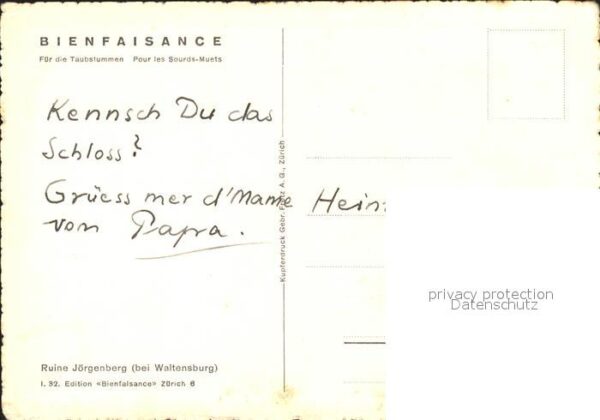 BIENFAISANCE
Für die Taubstummen Pour les Sourds-Muets
Kennsch Du das
Schloss?
Grüess mer d'Mame
von Papa.
Kupferdruck Gebr. A. G., Zürich
Hein
privacy protection
Datenschutz
Ruine Jörgenberg (bei Waltensburg)
I. 32. Edition «Bienfaisance» Zürich 6